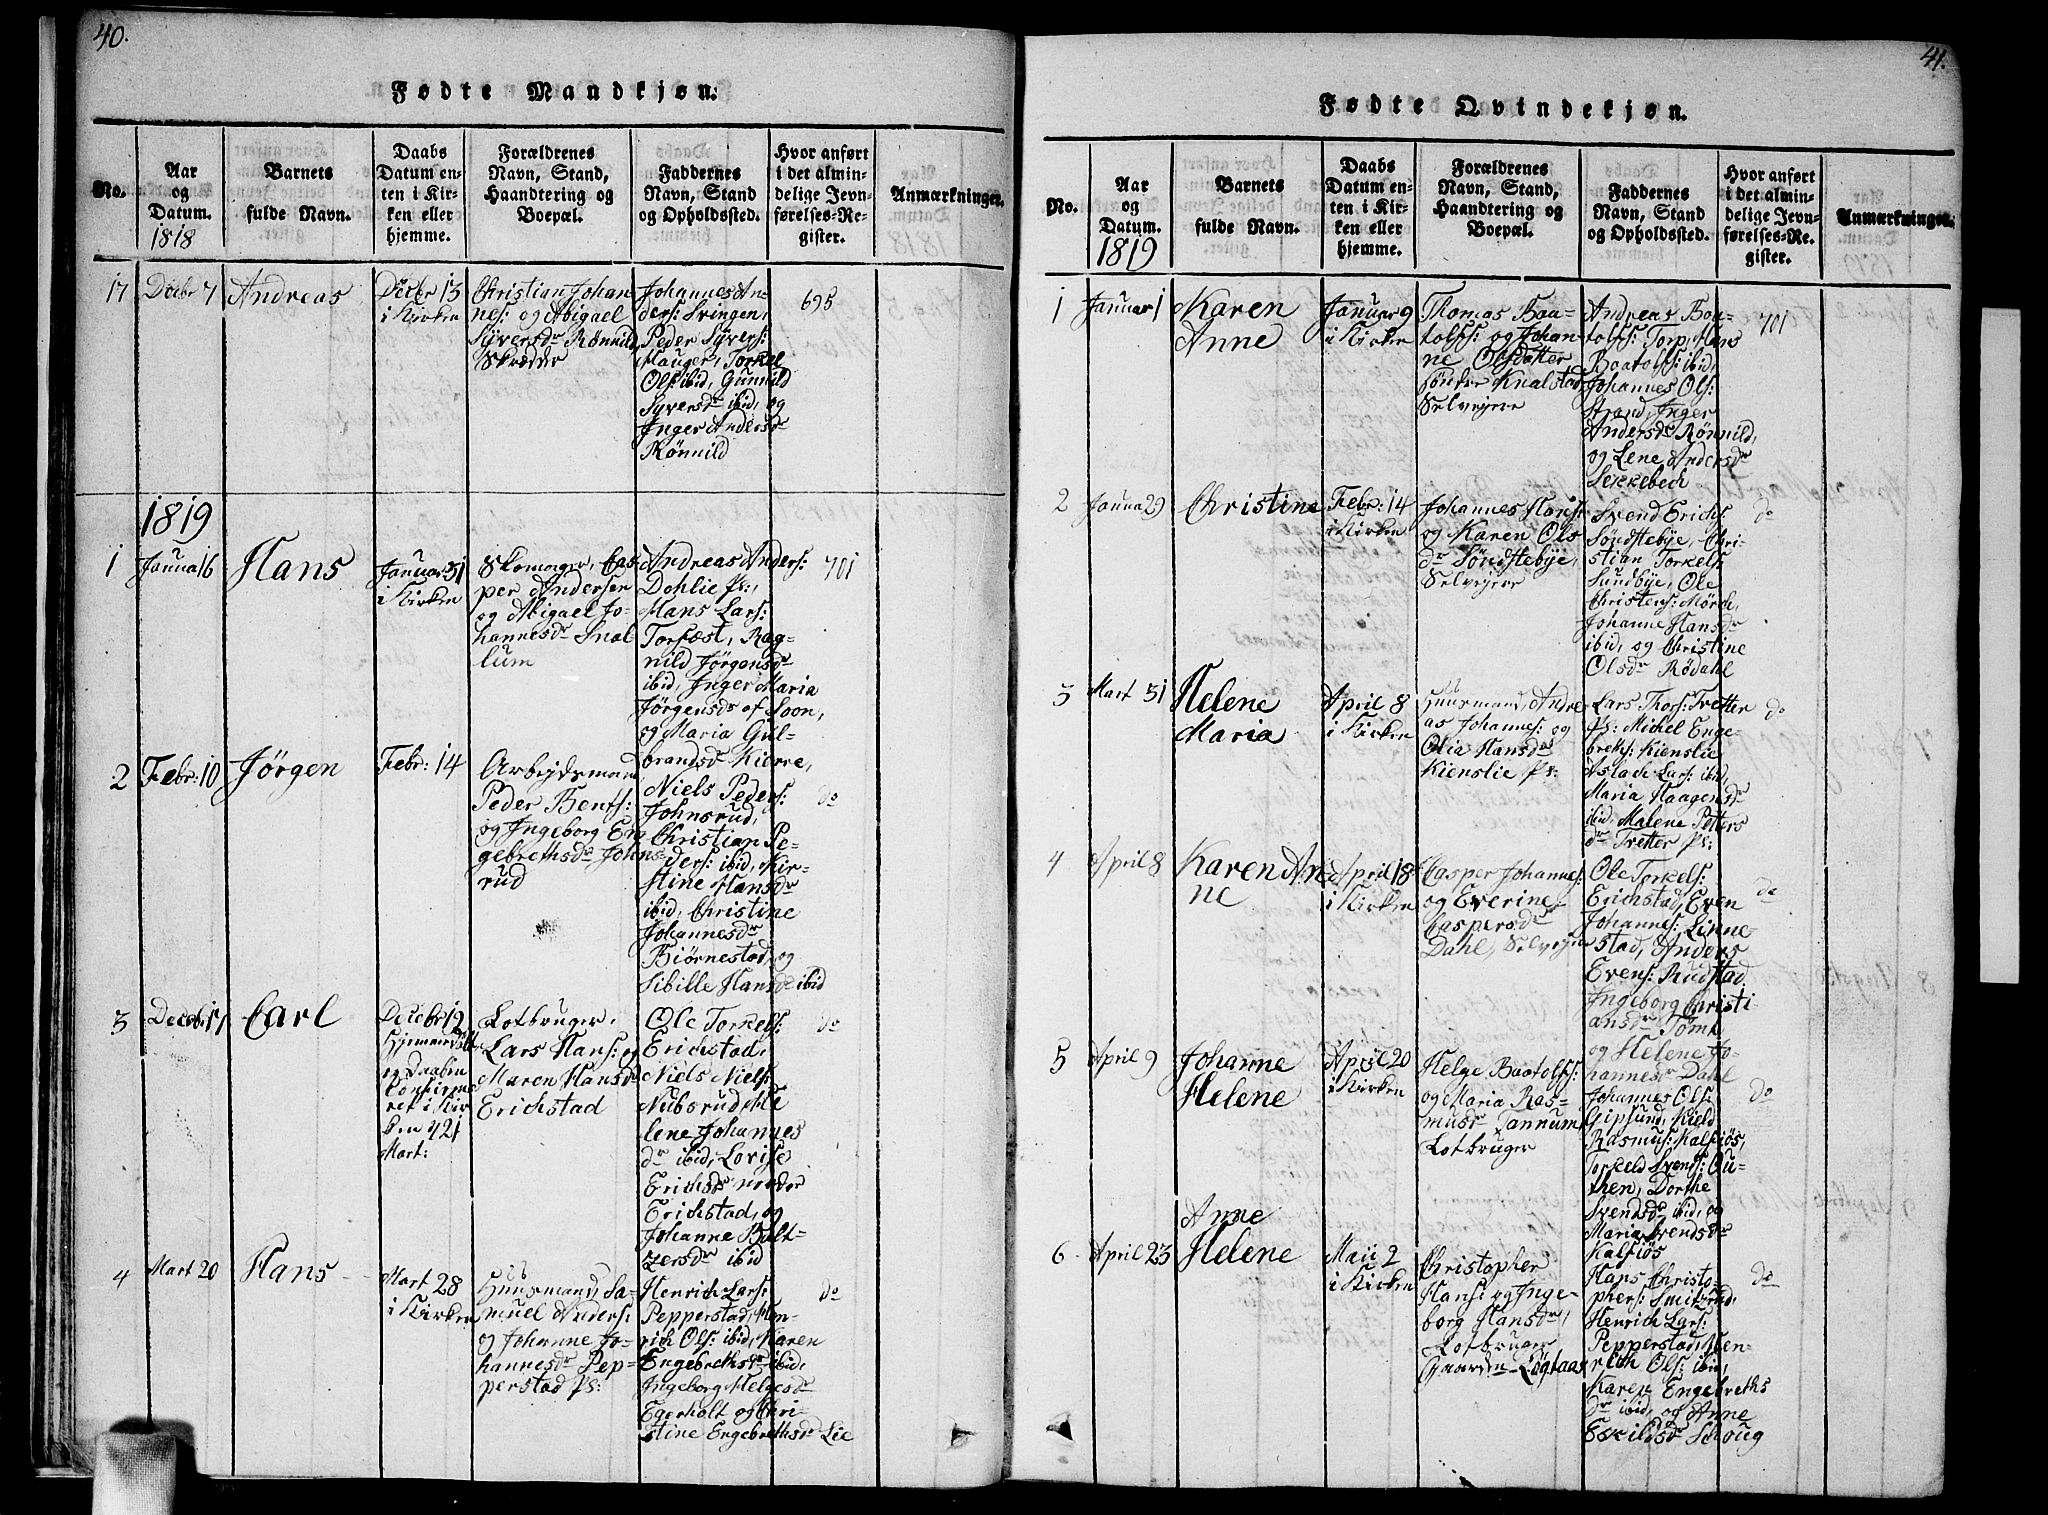 40.
Fødte Mandkjøn.
No.
Aar
og
Datum.
1818
Barnets
fulde Navn.
Daabs
Datum en-
ten i Kir-
ken eller
hjemme.
Forældrenes
Navn, Stand,
Haandtering og
Boepæl.
Faddernes
Navn, Stand
og Opholdssted.
Hvor anført
i det almin-
delige Jevn-
førelses-Re-
gister.
Anmærkninger.
17
Decbr 7
Andreas
Decbr 13
i Kirken
Christian Johan
nes: og Abigael
Syversdr Rönnild
Skrædder
Johannes An-
ders: Svingen,
Peder Syvers:
Mauger, Torkel
Ols: ibid, Gunnild
Syversdr ibid, og
Inger Andersdr
Rönnild
695
1819
1
Janua 16
Hans
Januar 31
i Kirken
Skomager, Cas-
per Andersen
og Abigael Jo-
hannesdr Snal-
lum
Andreas Anders:
Dahlie Ps:,
Hans Lars:
Torfæst, Rag-
nild Jörgensdr
ibid, Inger Maria
Jörgensdr af Soon,
og Maria Gul-
brandsd Kierre,
701
2
Febr: 10
Jörgen
Febr: 14
Arbejdsmand
Peder Bents:
og Ingeborg En-
gebrethsdr Johns-
rud
Niels Peders:
Johnsrud,
Christian Pe-
ders: ibid, Kir-
stine Hansdr
ibid, Christine
Johannesdr
Biörnestad, og
Sibille Hansdr ibid
do
3
Decebr 17
Carl
Decebr 19
Hjemmedöbt
og Daaben
Confirme
ret i Kir
ken d 21
Mart:
Lotbruger,
Lars Hans: og
Maren Hansdr
Erichstad
Ole Torkels:
Erichstad,
Niels Niels:
Nubsrud, He
lene Johannes
dr ibid, Lovise
Erichsdr nordre
Erichstad, og
Johanne Balt-
zersdr ibid
do
4
Mart 20
Hans
Mart 28
i Kirken
Huusmand, Sa-
muel Anders:
og Johanne Jo-
hannesdr Pep-
perstad Ps:
Henrich Lars:
Pepperstad, Hen-
rich Ols: ibid, Karen
Engebrethsdr ibid,
Ingeborg Helgesdr
Egerholt og Chri-
stine Engebrethsdr Lie
do
41.
Fødte Qvindekjøn.
No.
Aar
og
Datum.
1819
Barnets
fulde Navn.
Daabs
Datum en-
ten i Kir-
ken eller
hjemme.
Forældrenes
Navn, Stand,
Haandtering og
Boepæl.
Faddernes
Navn, Stand
og Opholdssted.
Hvor anført
i det almin-
delige Jevn-
førelses-Re-
gister.
Anmærkninger.
1
Januar 1
Karen
Anne
Januar 9
i Kirken
Thomas Baa-
tolfs: og Johan-
ne Olsdatter
söndre Knalstad
Selvejere
Andreas Baa-
tolfs: Torp, Hans
Baatolfs: ibid,
Johannes Ols:
Strand, Inger
Andersdr Rönnild,
og Lene Andersdr
Lekkebech
701
2
Janua 29
Christine
Febr: 14
i Kirken
Johannes Hans:
og Karen Ols
dr Söndstebye,
Selvejere
Svend Erichs:
Söndstebye, Chri-
stian Torkels:
Sundbye, Ole
Christens: Mörch,
Johanne Hansdr
ibid, og Christine
Olsdr Rödahl
do
3
Mart 31
Helene
Maria
April 8
i Kirken
Huusmand, Andre
as Johannes: og
Olia Hansdr
Kienslie Ps:
Lars Thors: Tretter
Ps: Michel Enge-
breths: Kienslie
Aslach Lars: ibid,
Maria Haagensdr
ibid, Malene Petters
dr Tretter Ps:
do
4
April 8
Karen An-
ne
April 18
i Kirken
Casper Johannes:
og Everine
Caspersdr
Dahl, Selvejere
Ole Torkels:
Erichstad, Even
Johannes: Linne-
stad, Anders
Evens: Rudstad
Ingeborg Christi
ansdr Tomt
og Helene Jo-
hannesdr Dahl
do
5
April 9
Johanne
Helene
April 20
i Kirken
Helge Baatolfs:
og Maria Ras-
musdr Tannum,
Lotbruger
Johannes Ols:
Gipsund, Kield
Rasmus: Kalsiös,
Torkeld Svends: Ou-
then, Dorthe
Svendsdr ibid, og
Maria Svendsdr
Kalsiös
do
6
April 23
Anne
Helene
Maii 2
i Kirken
Christopher
Hans: og Inge-
borg Hansdr,
Lotbruger
Gaarden Lögtaas
Hans Christo-
phers: Smitzrud,
Henrich Lars:
Pepperstad, Hen-
rich Ols: ibid,
Karen Engebreths
dr ibid, og Anne
Eskildsdr Schoug
do